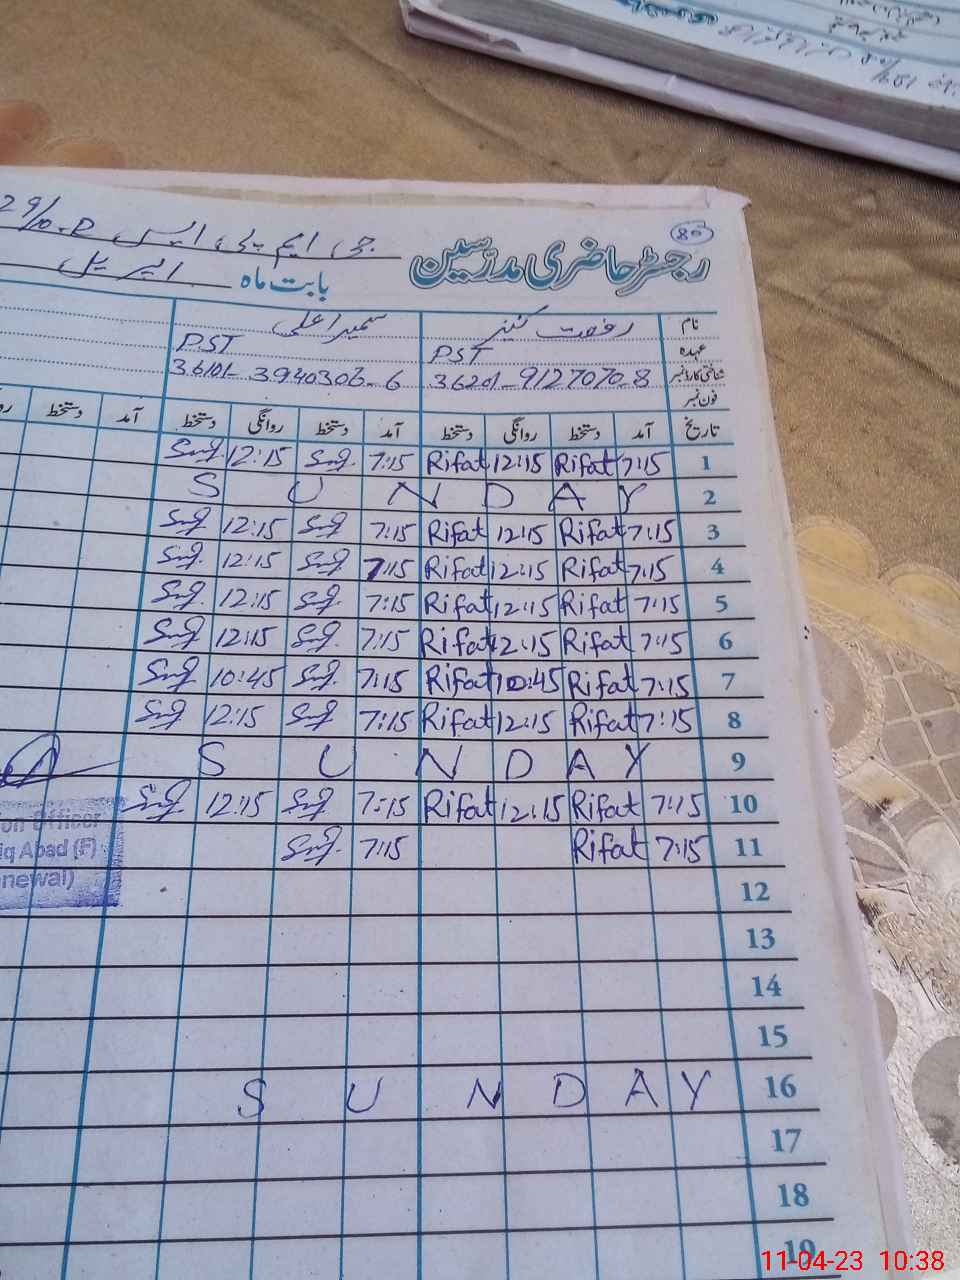 80
رجسٹر حاضری مدرسین
جی ایم پی ایس 29/10-R
بابت ماہ اپریل
نام رفعت کنیز سمیرا علی
عہدہ PST PST
شناختی کارڈ نمبر 36201-9127070-8 36101-3940306-6
فون نمبر
تاریخ آمد دستخط روانگی دستخط آمد دستخط روانگی دستخط آمد دستخط
1 7:15 Rifat 12:15 Rifat 7:15 12:15
2 SUNDAY
3 7:15 Rifat 12:15 Rifat 7:15 12:15
4 7:15 Rifat 12:15 Rifat 7:15 12:15
5 7:15 Rifat 12:15 Rifat 7:15 12:15
6 7:15 Rifat 12:15 Rifat 7:15 12:15
7 7:15 Rifat 10:45 Rifat 7:15 10:45
8 7:15 Rifat 12:15 Rifat 7:15 12:15
9 SUNDAY
10 7:15 Rifat 12:15 Rifat 7:15 12:15
11 7:15 Rifat 7:15
on Officer
iq Abad (F)
newal)
12
13
14
15
16 SUNDAY
17
18
19
11-04-23 10:38